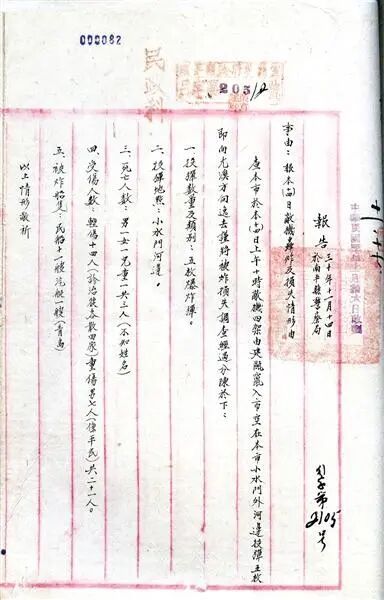 000082
民政科
205
報告 三十年十一月十四日
於南平縣警察局
事由：報本(14)日敵機轟炸及損失情形由
查本市於本(14)日上午十時敵機四架由東竄入市空在本市小水門外河邊投彈五枚
即向尤溪方向逸去謹將被炸損失調查經過分陳於下：
一、投彈數量及類別：五枚爆炸彈。
二、投彈地點：小水門河邊。
三、死亡人數：男一女一兒童一共三人(不知姓名)
四、受傷人數：輕傷十四人(診治後各散回家)重傷男七人(係平民)共二十一人。
五、被炸船隻：民船十一艘汽艇一艘(青島)
以上情形敬祈
字第2105號